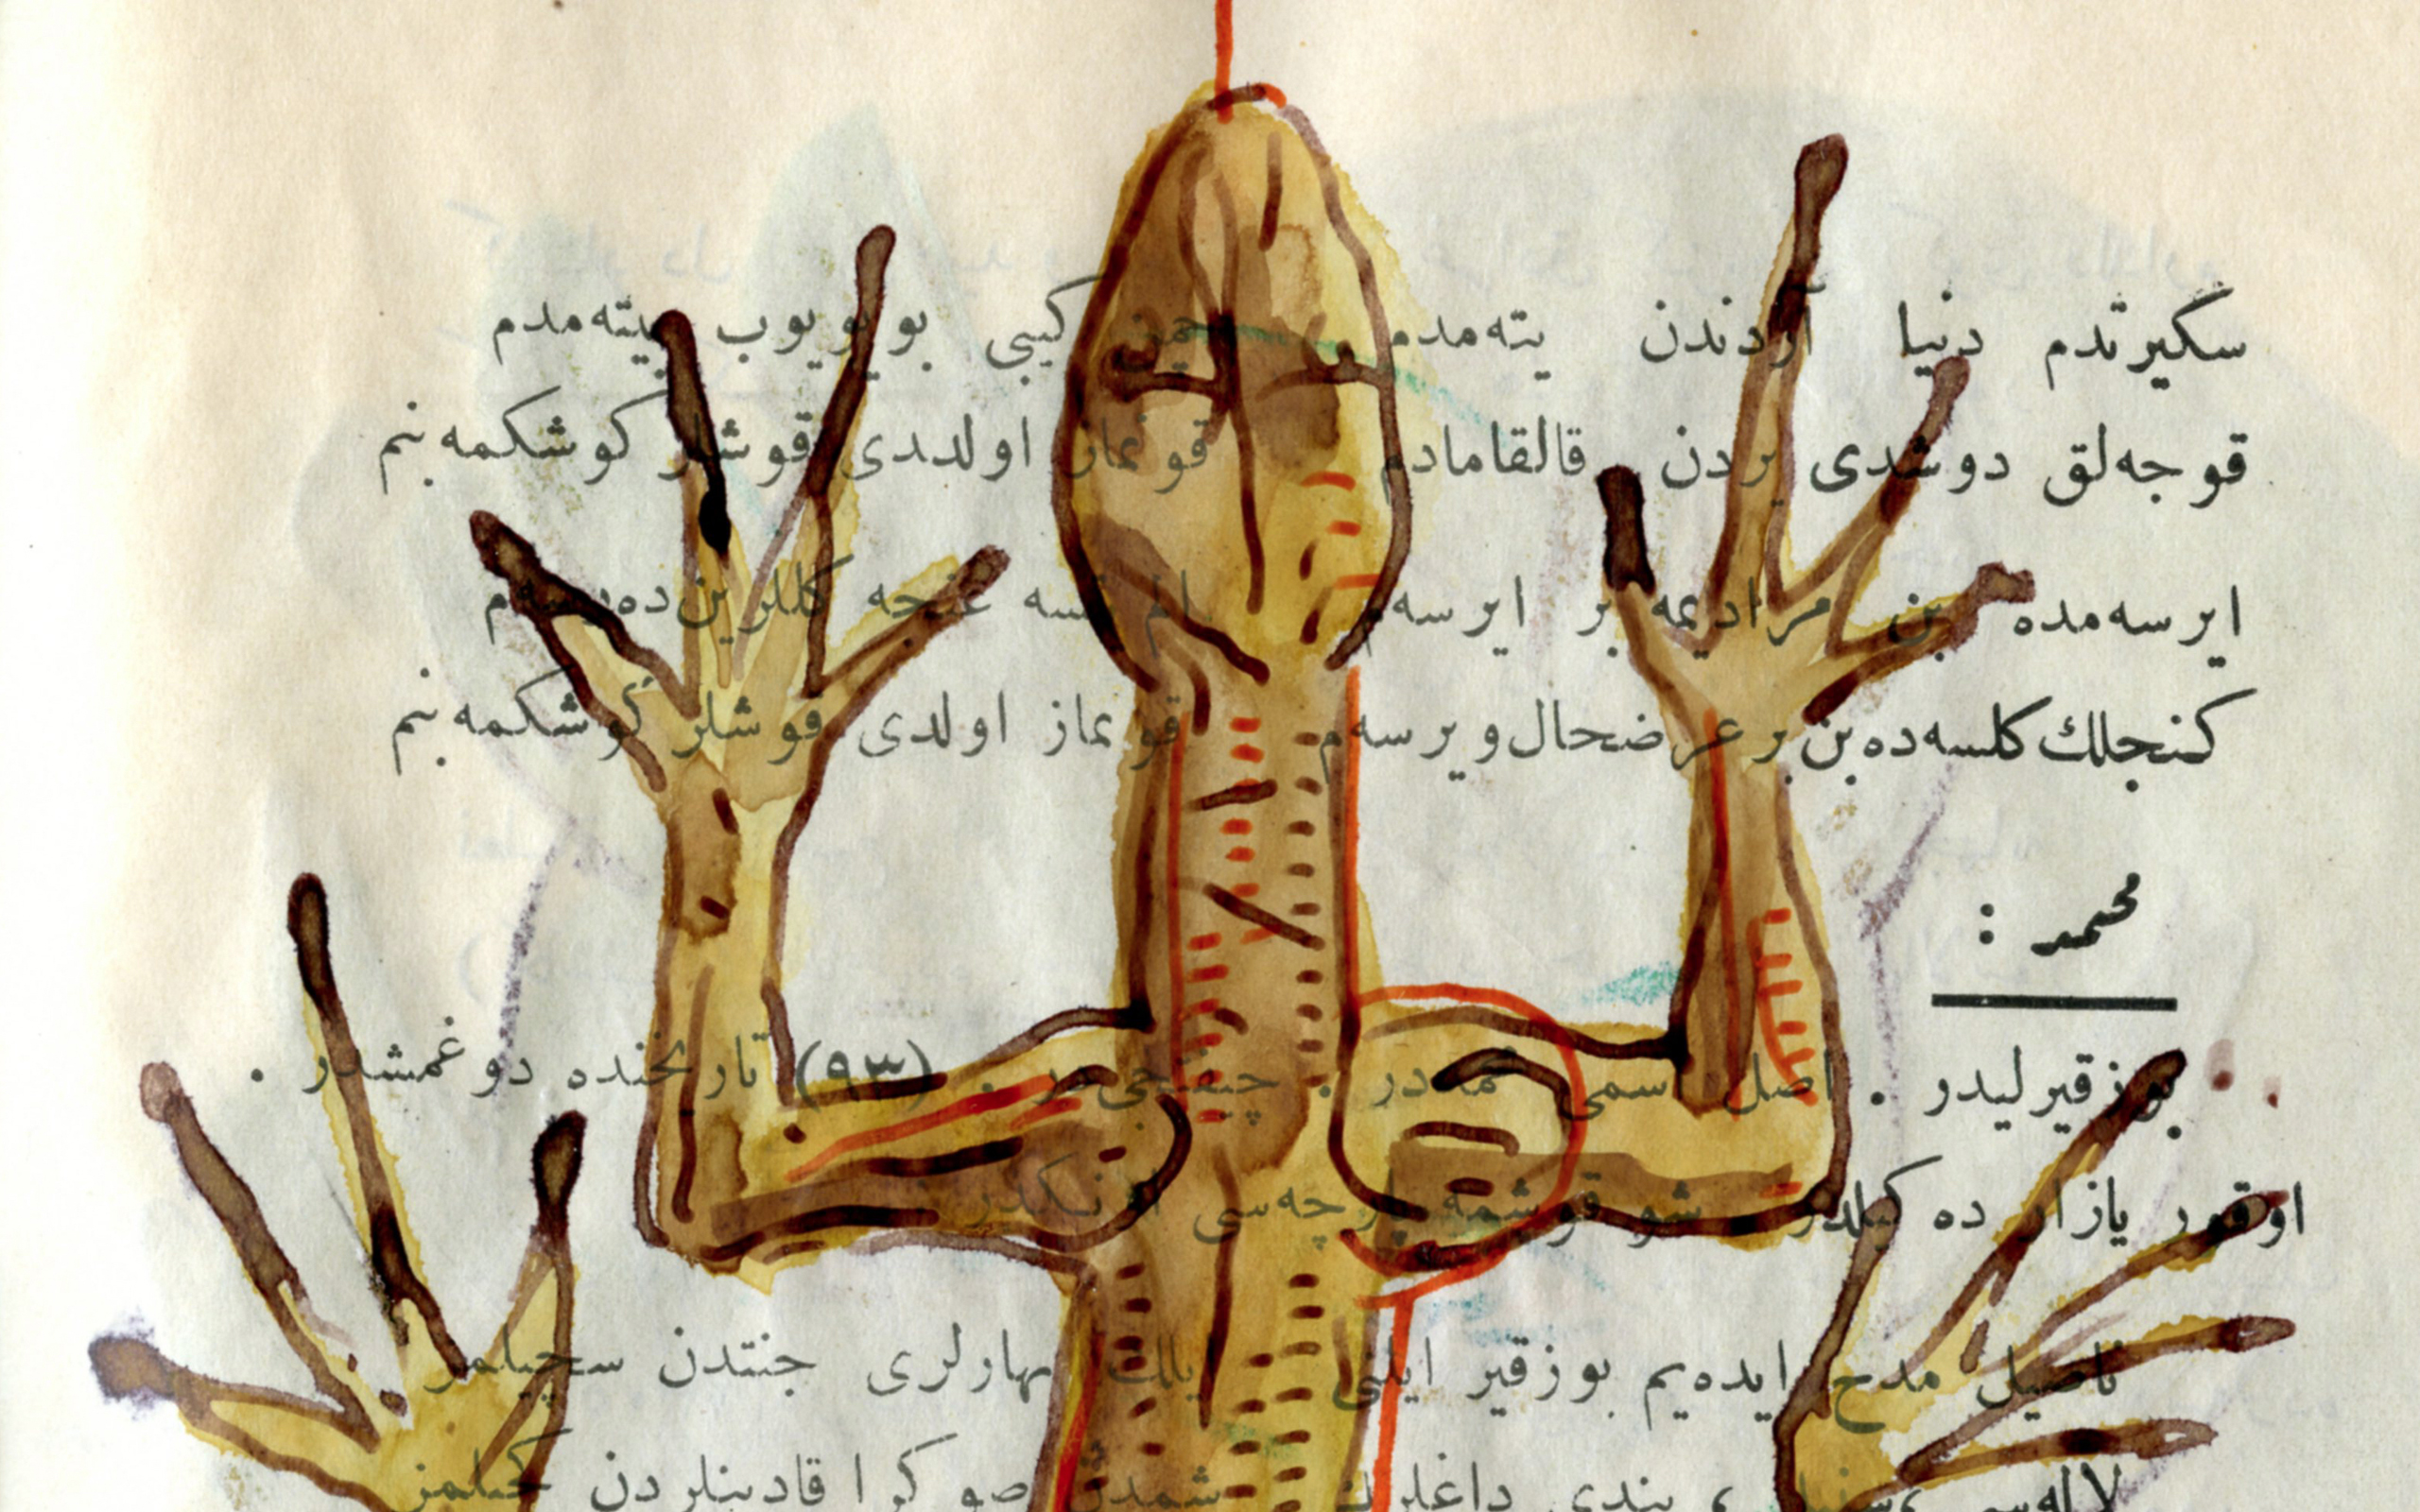 سگیرتدم دنیا آردندن یته‌مدم كیبی بویویوب بیته‌مدم
قوجه‌لق دوشدی یردن قالقامادم قونماز اولددی قوشلر كوشكمه‌بنم
ایرسه‌مده بن مرادیمه بر ایرسه‌م غنجه كللرین‌ده
كنجلك كلسه‌ده‌بن بر عرضحال‌ویرسه‌م قونماز اولدی قوشلر كوشكمه‌بنم
محمد :
بوزقیرلیدر . اصل اسمی در . چیفتجی‌در . (٩٣) تاریخنده دوغمشدر .
اوقور یازار ده كیلدر شو قوشمه پارچه‌سی اونكدر .
ناصیل مدح ایده‌یم بوزقیر ایلنی ایلك بهارلری جنتدن سچیلمز
لاله‌سی داغلرك صوكرا قادینلردن كچیلمز